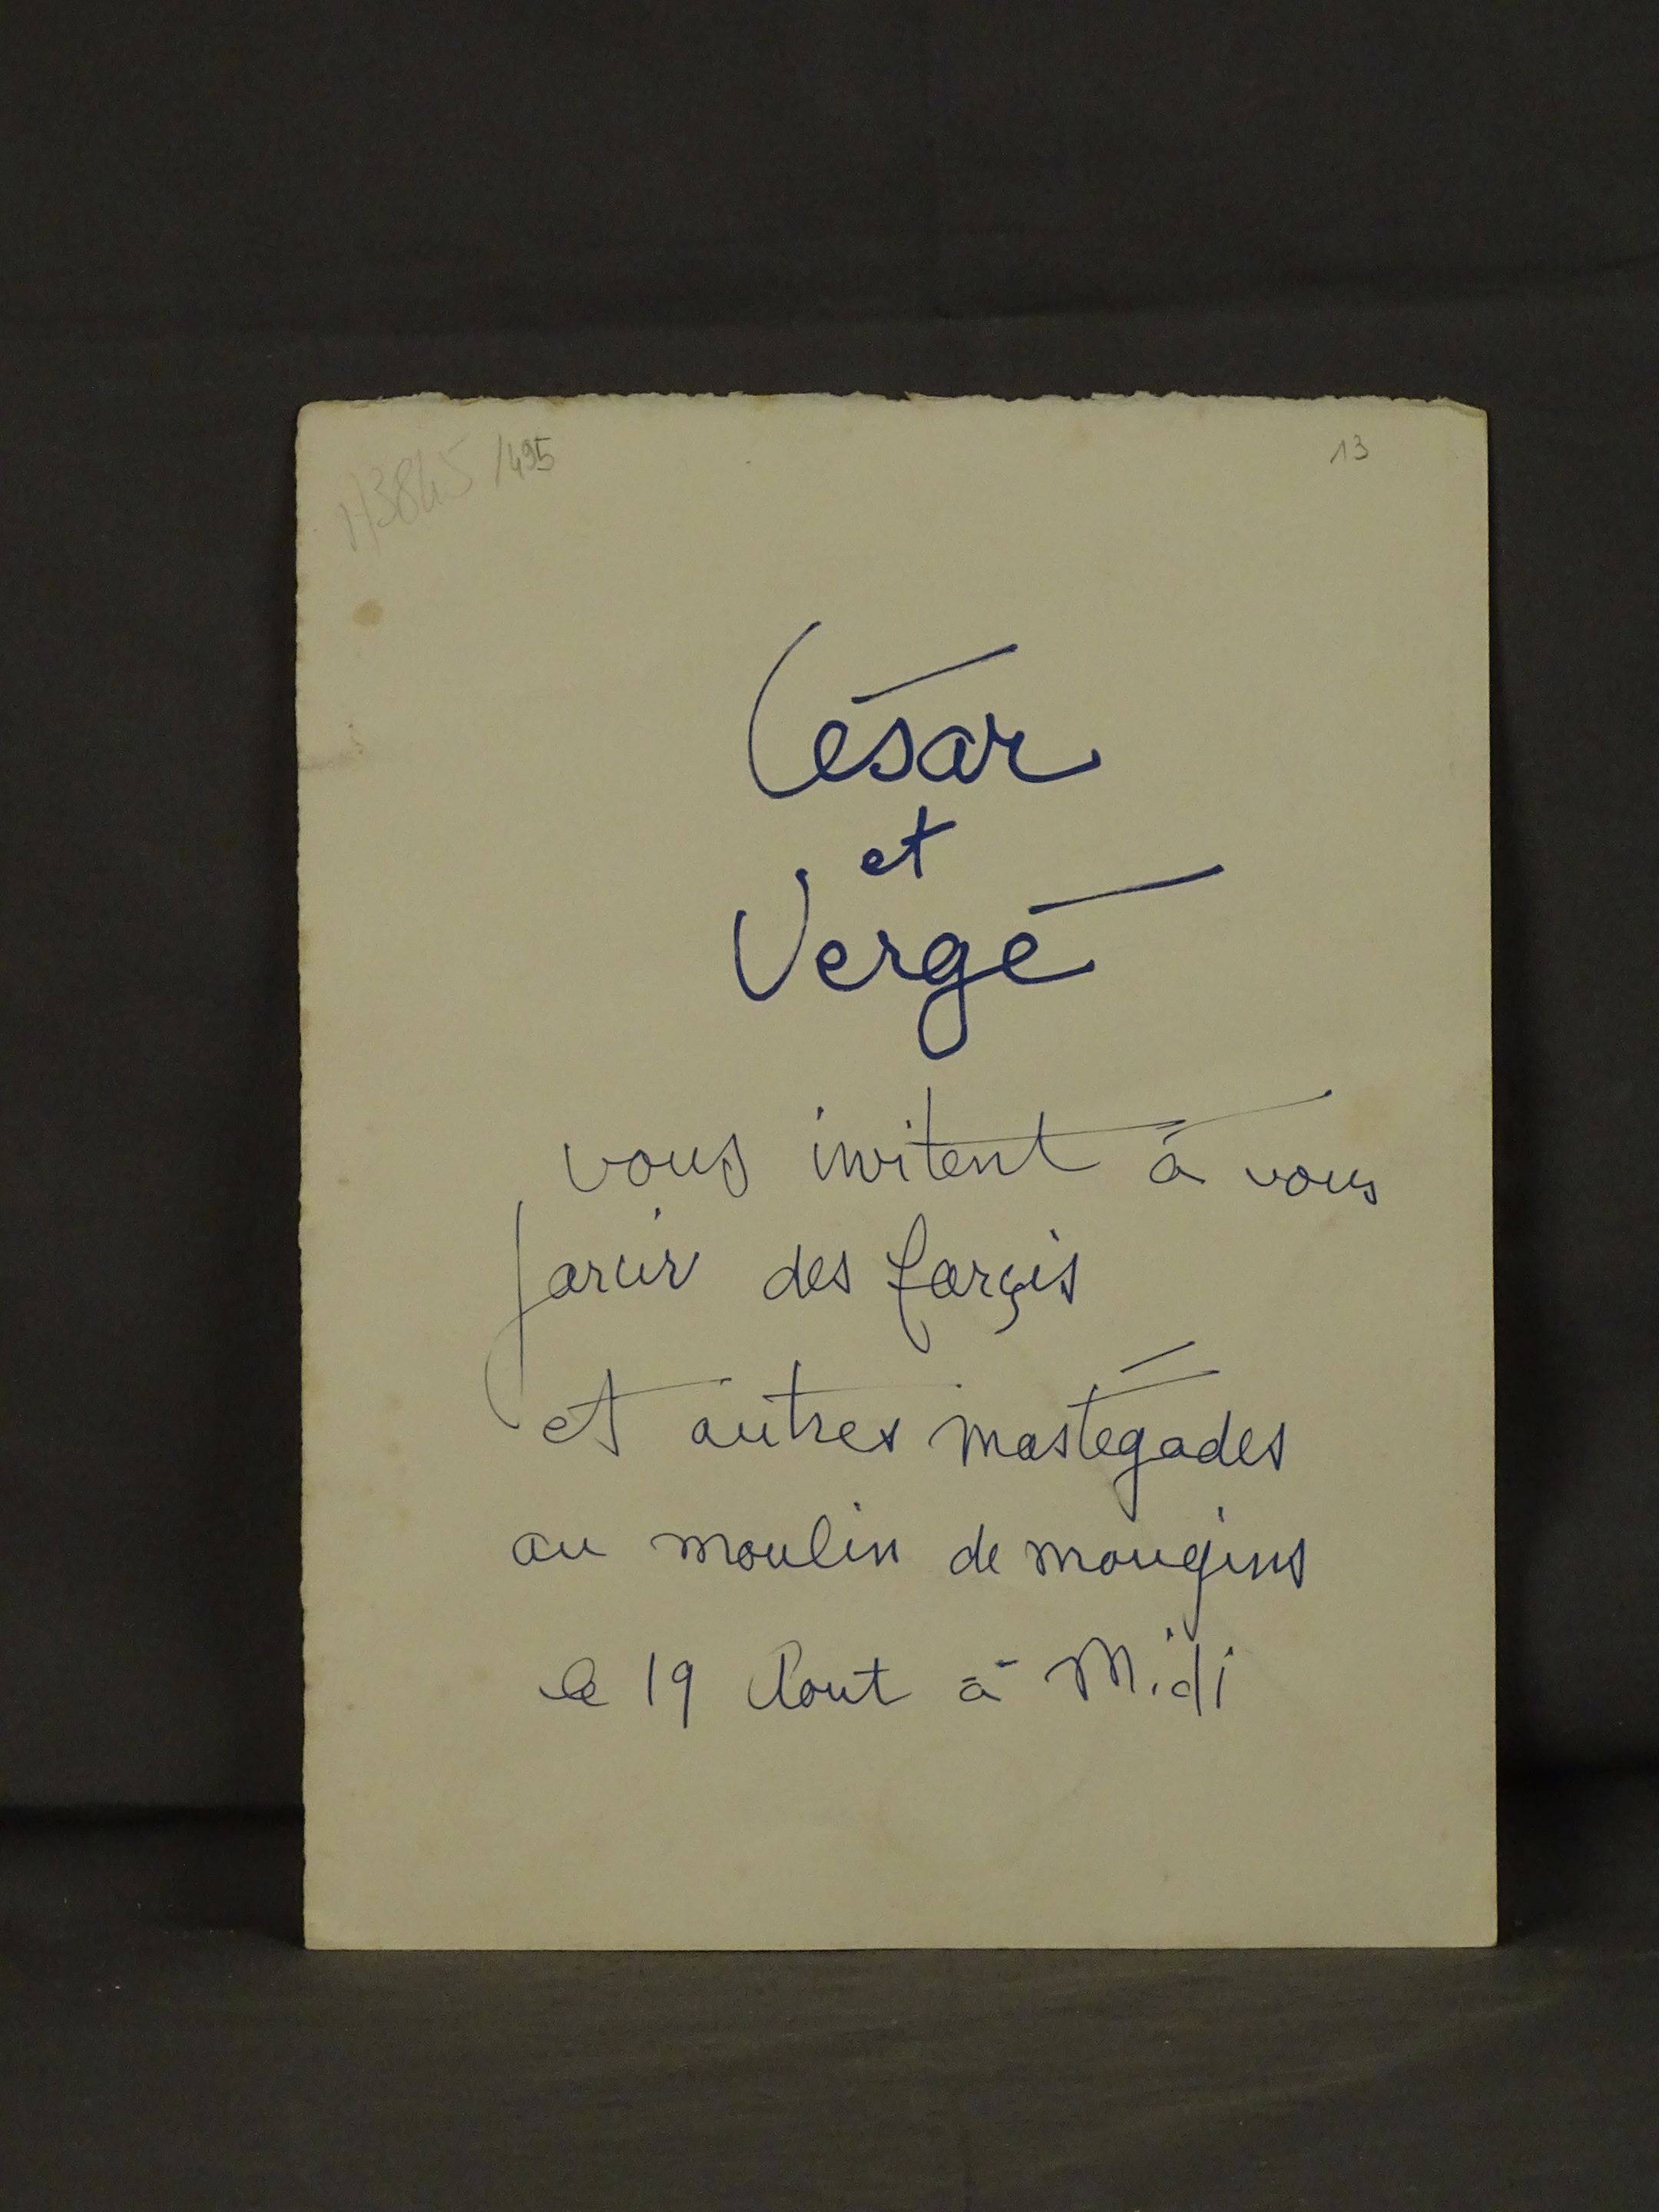 /495
13
César
et
Vergé
vous invitent à vous
farcir des farçis
et autres mastégades
au moulin de mougins
le 19 Aout à Midi